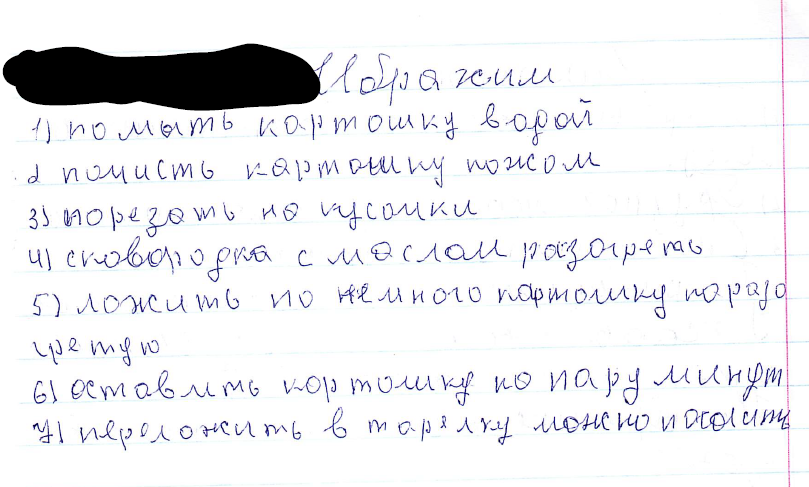 Ибражим
1) помыть картошку водой
2 почисть картошку ножом
3) порезать на кусочки
4) сковородка с маслом разогреть
5) ложить по немного картошку на разо
гретую
6) оставить картошку на пару минут
7) переложить в тарелку можно посолить